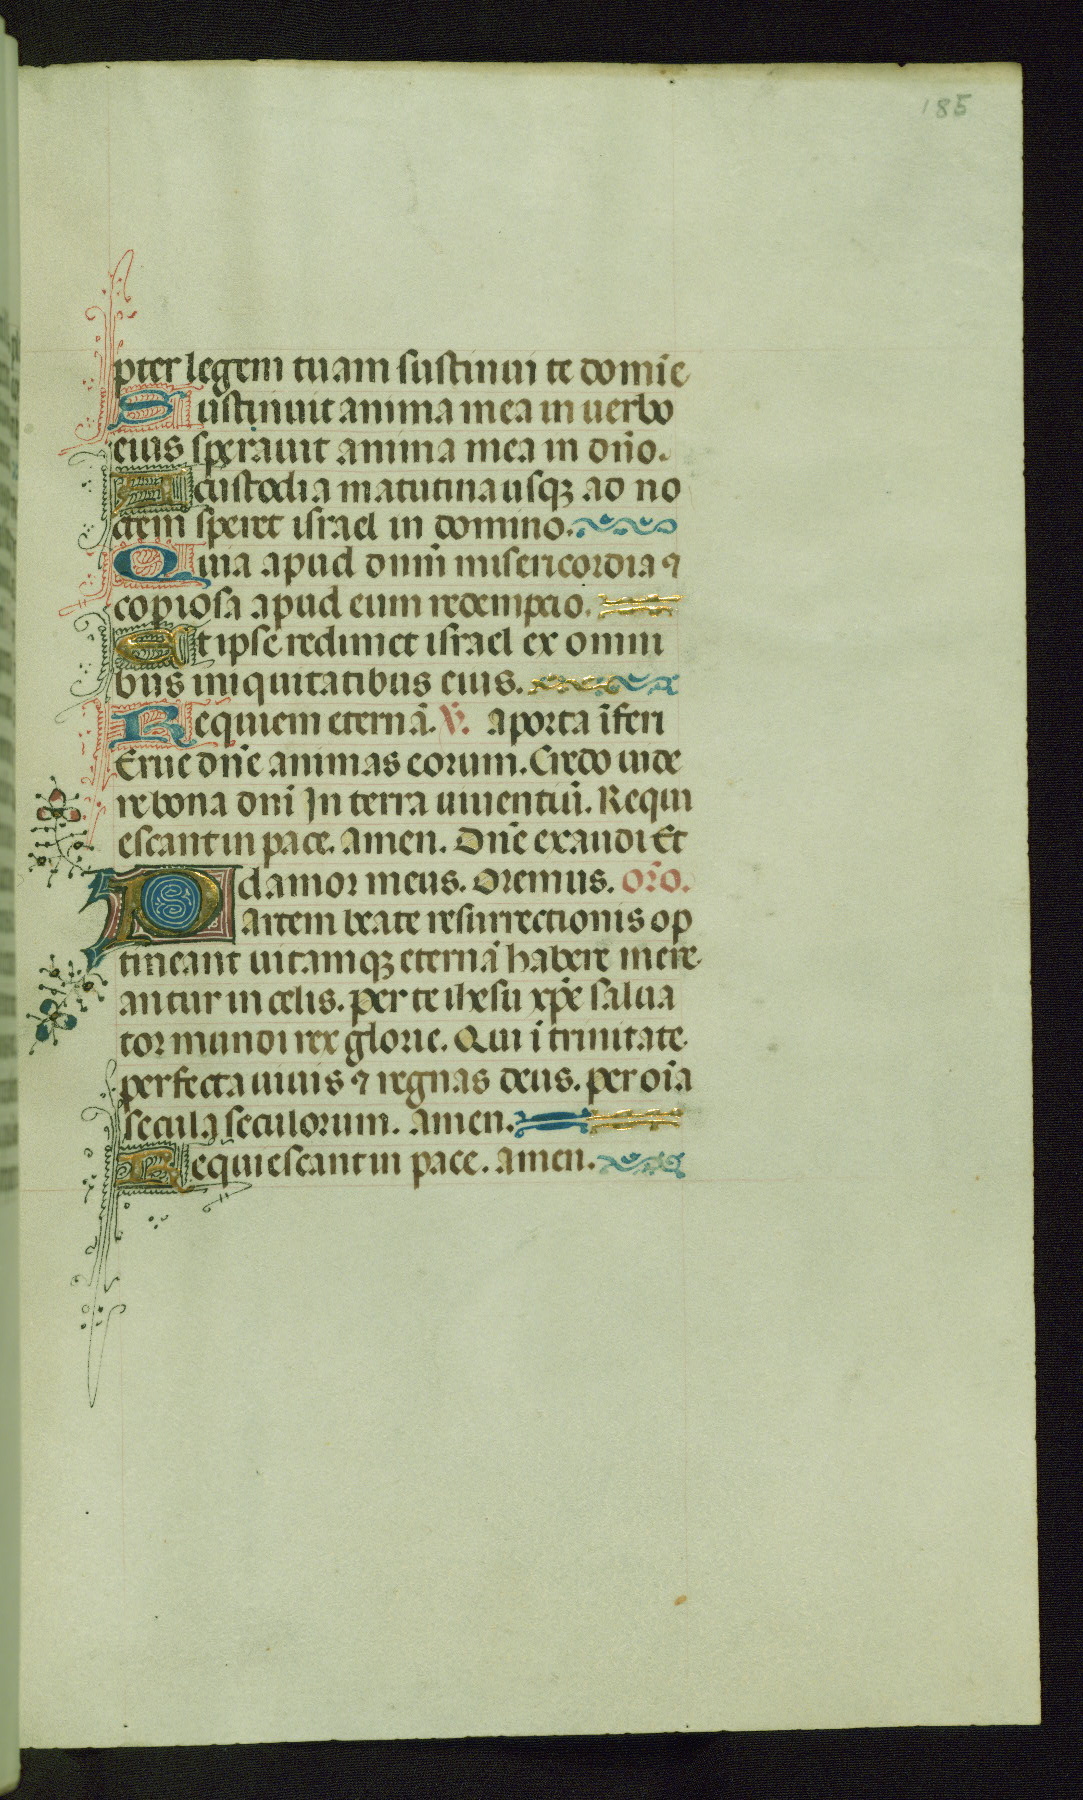 185
pter legem tuam sustinui te domĩe
Sustinuit anima mea in uerbo
eius sperauit anima mea in dño.
A custodia matutina usqꝫ ad no
ctem speret israel in domino.
Quia apud dnm̃ misericordia ⁊
copiosa apud eum redempcio.
Et ipse redimet israel ex omni
bus iniquitatibus eius.
Requiem eternã. V̓. a porta ĩferi
Erue dñe animas eorum. Credo uide
re bona dnĩ In terra uiuentiũ. Requi
escant in pace. amen. Dñe exaudi Et
clamor meus. Oremus. or̃o.
Partem beate resurrectionis op
tineant uitamqꝫ eternã habere mere
antur in celis. per te ihesu xp̃e salua
tor mundi rex glorie. Qui ĩ trinitate
perfecta uiuis ⁊ regnas deus. per oĩa
secula seculorum. amen.
Requiescant in pace. amen.